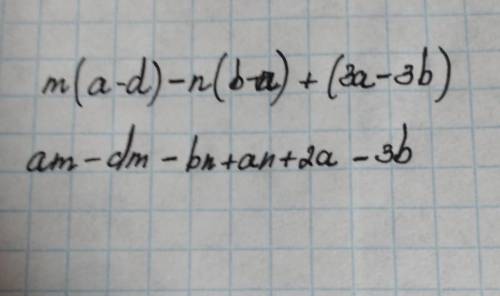 m(a-d)-n(b-a)+(3a-3b)
am-dm-bn+an+2a-3b